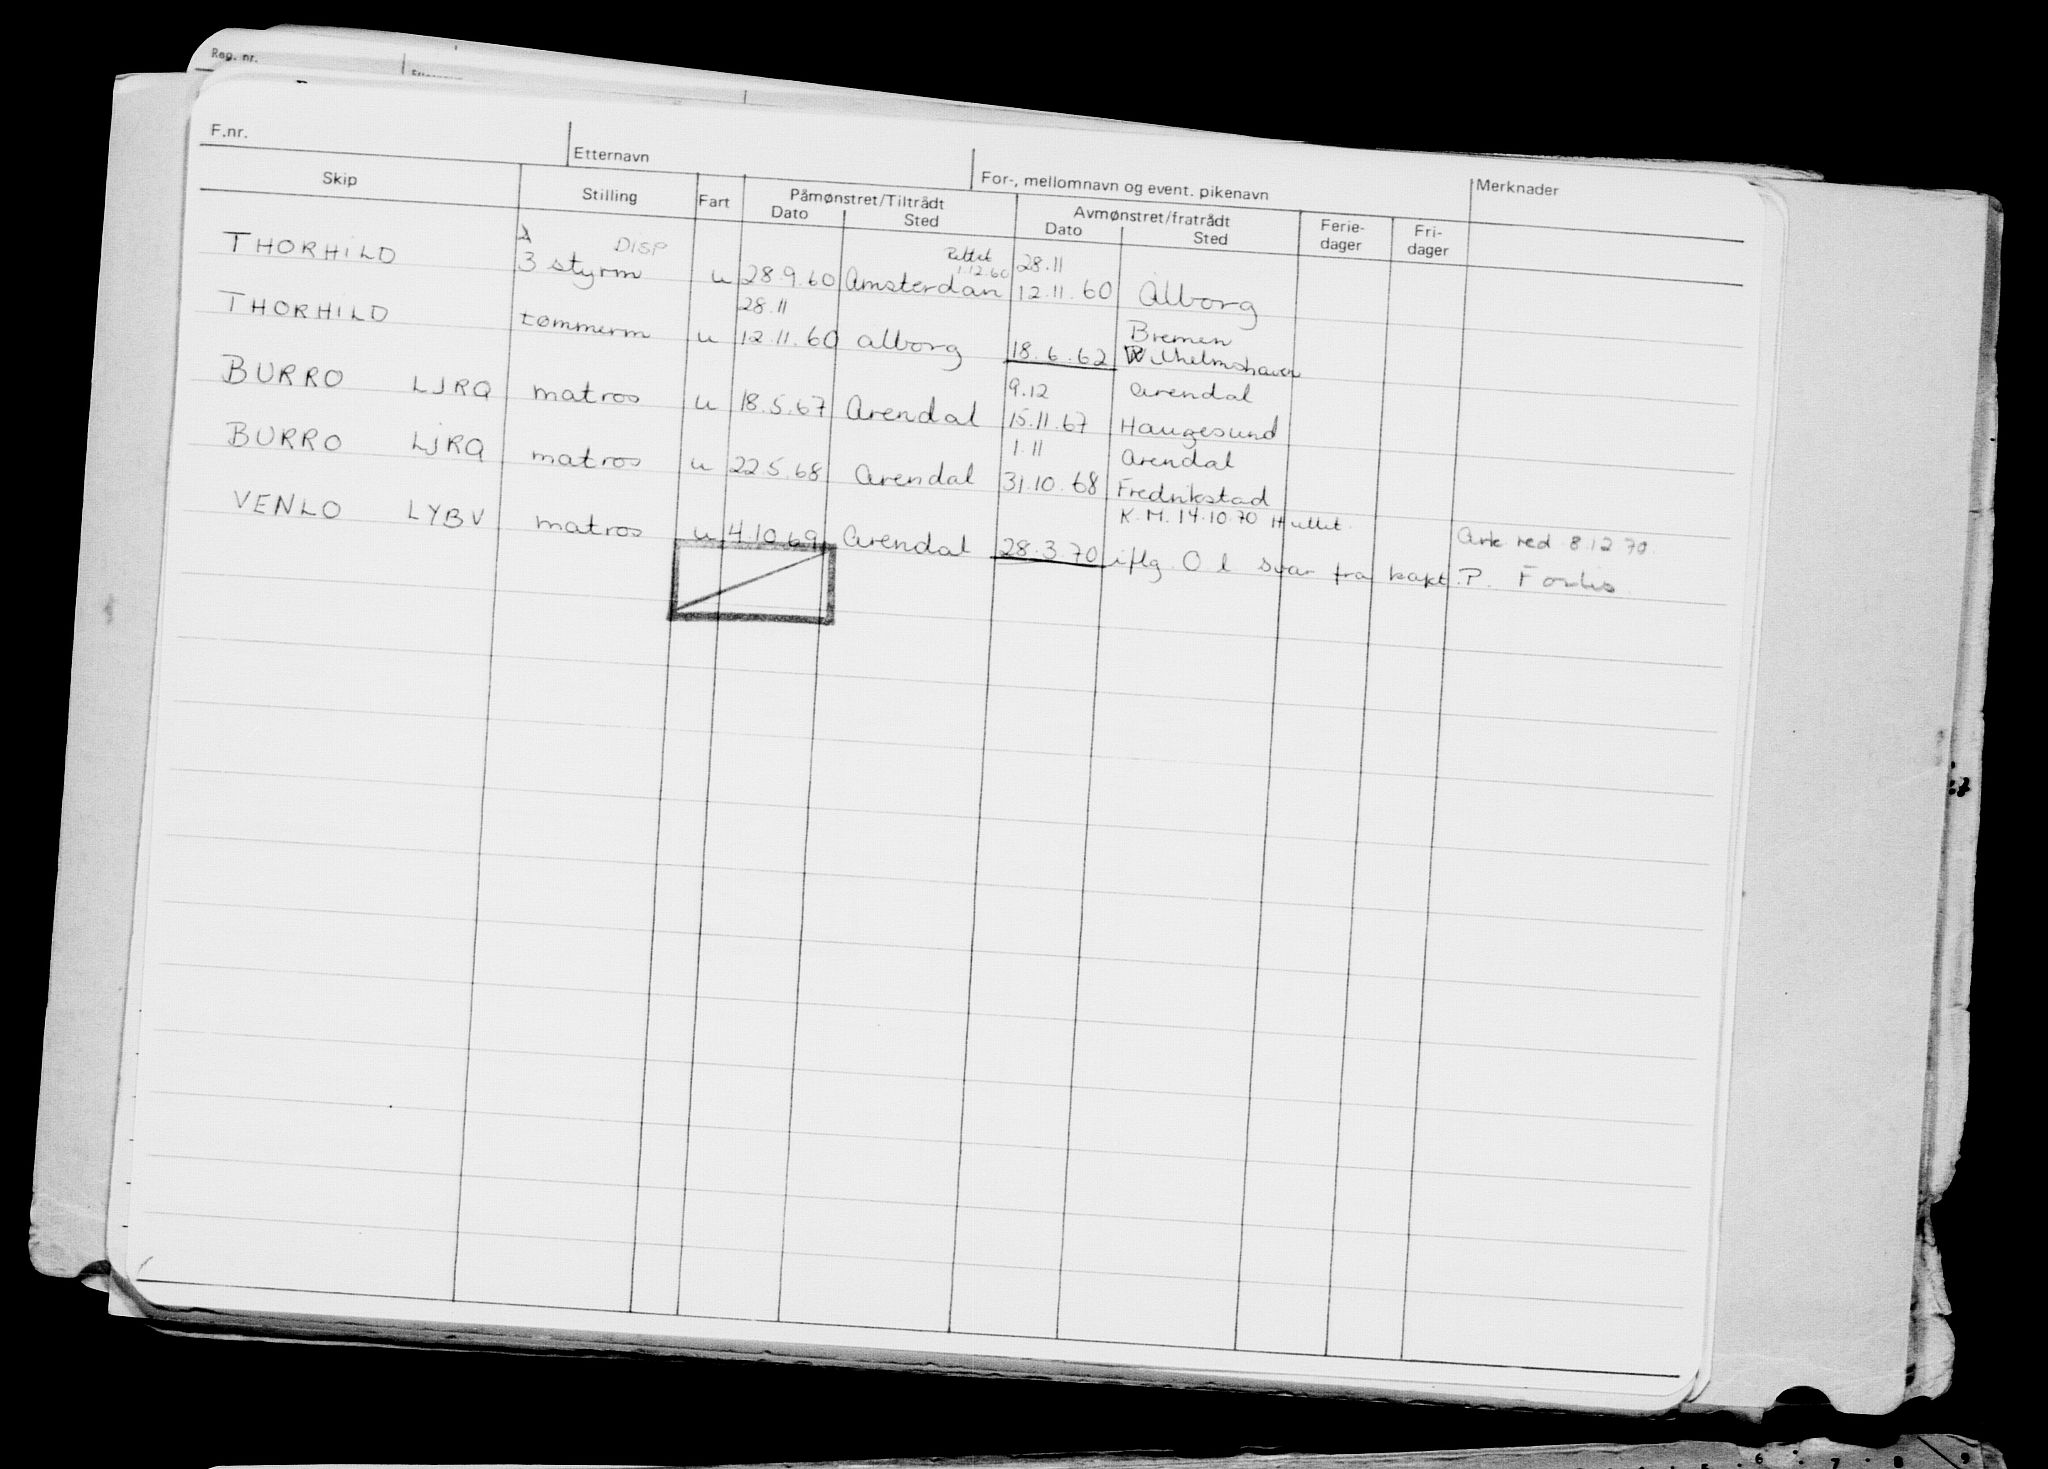 Reg. nr.
F.nr. Etternavn For-, mellomnavn og event. pikenavn Merknader
Skip Stilling Fart Påmønstret/Tiltrådt Avmønstret/fratrådt Ferie- dager Fri- dager
Dato Sted Dato Sted
DISP Rettet 28.11
THORHILD 3 styrm u 28.9.60 Amsterdan 1.12.60 12.11.60 Alborg
28.11 Bremen
THORHILD tømmerm u 12.11.60 alborg 18.6.62 Wilhelmshaven
9.12 Arendal
BURRO LJRQ matros u 18.5.67 Arendal 15.11.67 Haugesund
1.11 Arendal
BURRO LJRQ matros u 22.5.68 Arendal 31.10.68 Fredrikstad
K.M. 14.10.70 Hullet. Ark red 8.12 70.
VENLO LYBV matros u 4.10.69 Arendal 28.3.70 iflg. O l svar fra kapt. P.
6 7 8 9